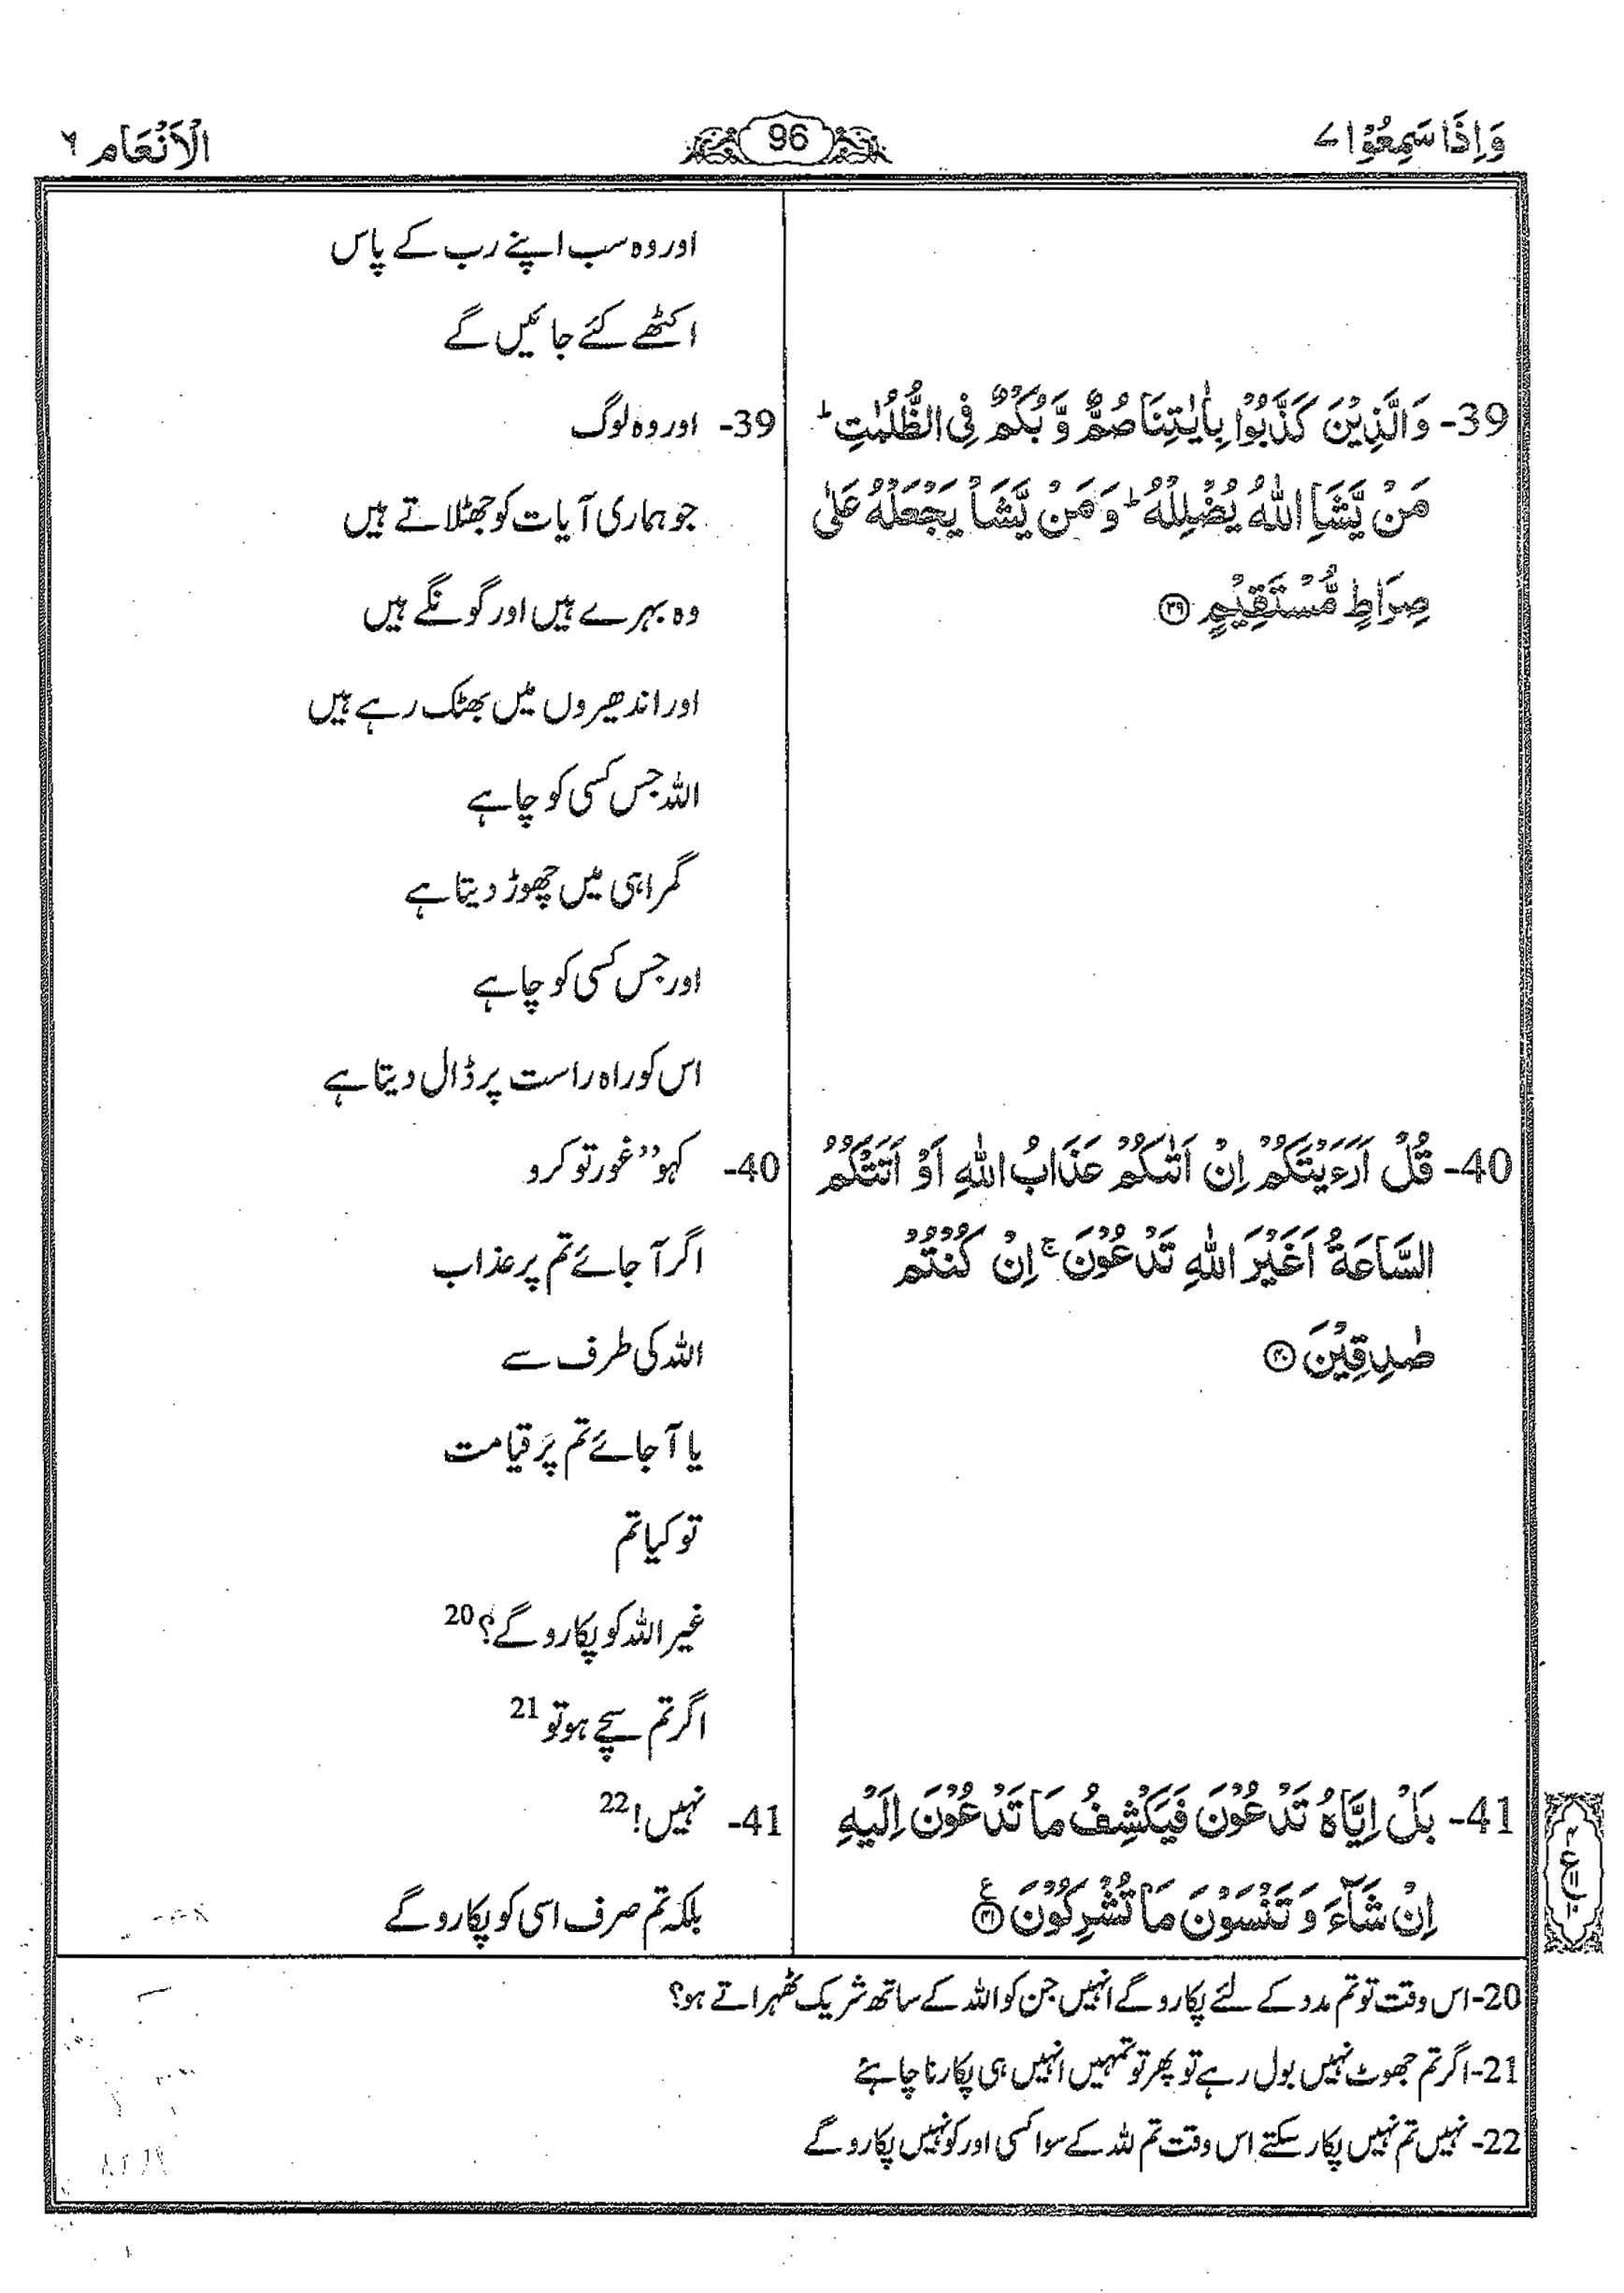 وَاِذَا سَمِعُوْا ۷
96
الْاَنْعَام ۶
39- وَالَّذِيْنَ كَذَّبُوْا بِاٰيٰتِنَا صُمٌّ وَّ بُكْمٌ فِى الظُّلُمٰتِ ؕ
مَنْ يَّشَاِ اللّٰهُ يُضْلِلْهُ ؕ وَ مَنْ يَّشَاْ يَجْعَلْهُ عَلٰى
صِرَاطٍ مُّسْتَقِيْمٍ ۝۳۹
40- قُلْ اَرَءَيْتَكُمْ اِنْ اَتٰىكُمْ عَذَابُ اللّٰهِ اَوْ اَتَتْكُمُ
السَّاعَةُ اَغَيْرَ اللّٰهِ تَدْعُوْنَ ۚ اِنْ كُنْتُمْ
صٰدِقِيْنَ ۝۴۰
41- بَلْ اِيَّاهُ تَدْعُوْنَ فَيَكْشِفُ مَا تَدْعُوْنَ اِلَيْهِ
اِنْ شَآءَ وَ تَنْسَوْنَ مَا تُشْرِكُوْنَ ۝۴۱ ع
اور وہ سب اپنے رب کے پاس
اکٹھے کئے جائیں گے
39- اور وہ لوگ
جو ہماری آیات کو جھٹلاتے ہیں
وہ بہرے ہیں اور گونگے ہیں
اور اندھیروں میں بھٹک رہے ہیں
اللہ جس کسی کو چاہے
گمراہی میں چھوڑ دیتا ہے
اور جس کسی کو چاہے
اس کو راہ راست پر ڈال دیتا ہے
40- کہو ”غور تو کرو
اگر آ جائے تم پر عذاب
اللہ کی طرف سے
یا آ جائے تم پر قیامت
تو کیا تم
غیر اللہ کو پکارو گے؟ 20
اگر تم سچے ہو تو 21
41- نہیں! 22
بلکہ تم صرف اسی کو پکارو گے
20- اس وقت تو تم مدد کے لئے پکارو گے انہیں جن کو اللہ کے ساتھ شریک ٹھہراتے ہو؟
21- اگر تم جھوٹ نہیں بول رہے تو پھر تو تمہیں انہیں ہی پکارنا چاہئے
22- نہیں تم نہیں پکار سکتے اس وقت تم للہ کے سوا کسی اور کو نہیں پکارو گے